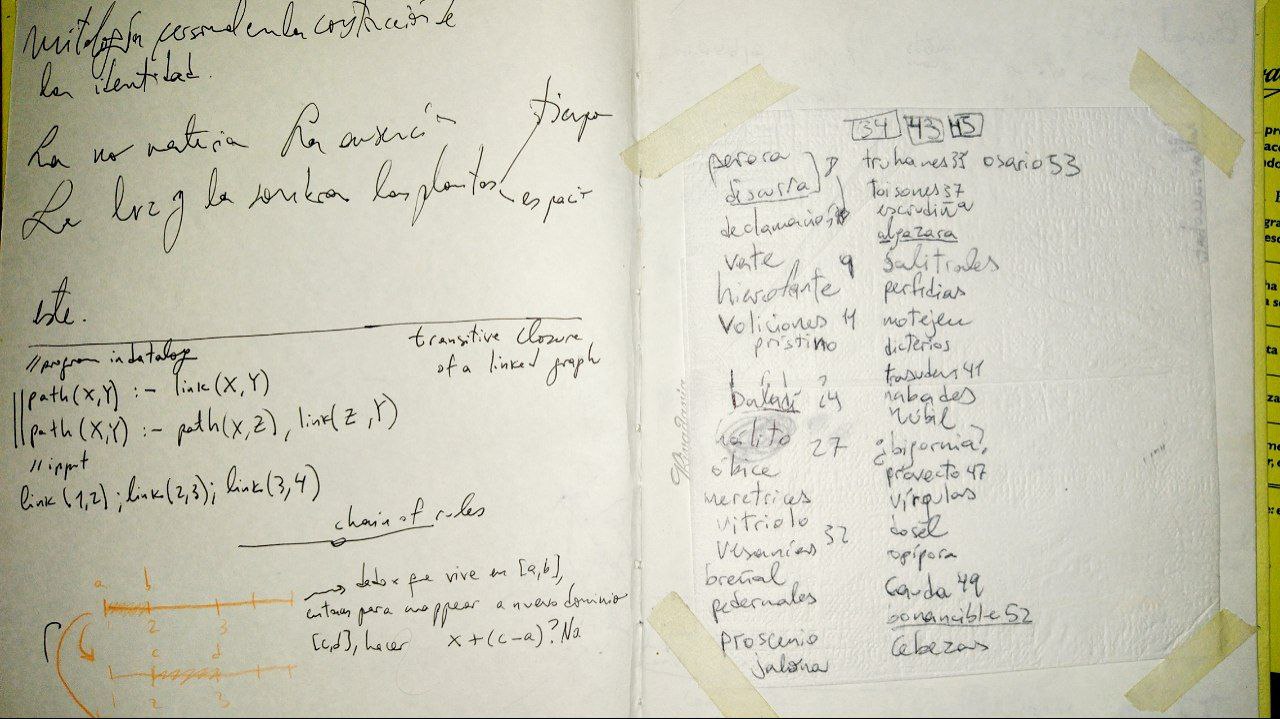 mitología personal en la construcción de
la identidad.
La no materia La ausencia
La luz y la sombra las plantas
tiempo
espacio
este.
transitive closure
of a linked graph
//program in datalog
path(X,Y) :- link(X,Y)
path(X,Y) :- path(X,Z), link(Z,Y)
//input
link(1,2); link(2,3); link(3,4)
chain of rules
a b
2 3
c d
1 2 3
dado x que vive en [a,b],
entonces para mappear a nuevo dominio
[c,d], hacer x+(c-a)? No
34 43 45
perora
discurría 8
declamación
vate 9
hierofante
voliciones 14
prístino
baladí 24
27
óbice
meretrices
vitriolo
vesanias 32
breñal
pedernales
proscenio
jalona
truhanes 35 osario 53
toisones 37
escudiña
algazara
salitrales
perfidias
motejen
dicterios
trasudens 41
nabades
núbil
¿bipornia?
provecto 47
vírgulas
dosel
opípora
Cauda 49
bonancible 52
Cabezas